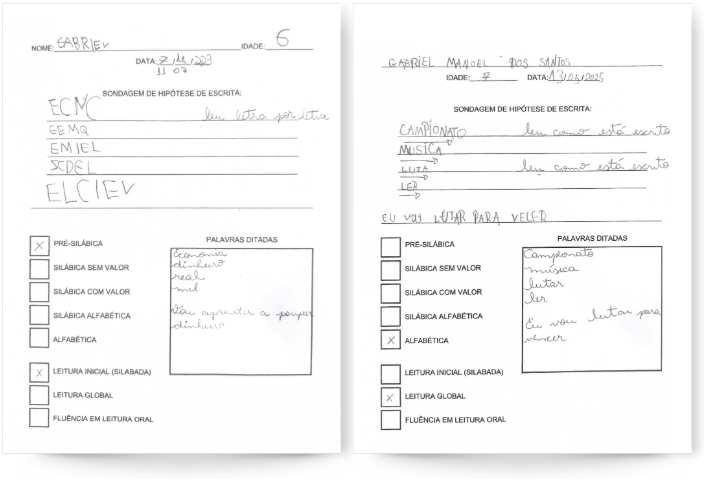 NOME: GABRIEV IDADE: 6
DATA: 7
11 07
SONDAGEM DE HIPÓTESE DE ESCRITA:
ECMC leu letra por letra
GEMQ
EMIEL
SCDEL
ELCIEV
X PRÉ-SILÁBICA
SILÁBICA SEM VALOR
SILÁBICA COM VALOR
SILÁBICA ALFABÉTICA
ALFABÉTICA
X LEITURA INICIAL (SILABADA)
LEITURA GLOBAL
FLUÊNCIA EM LEITURA ORAL
PALAVRAS DITADAS
Economia
dinheiro
real
mil
Vou aprender a poupar
dinheiro
GABRIEL MANOEL DOS SANTOS
IDADE: 7 DATA: 13/04/2025
SONDAGEM DE HIPÓTESE DE ESCRITA:
CAMPIONATO leu como está escrito
MUSICA
LUTA leu como está escrito
LER
EU VOU LUTAR PARA VECER
PRÉ-SILÁBICA
SILÁBICA SEM VALOR
SILÁBICA COM VALOR
SILÁBICA ALFABÉTICA
X ALFABÉTICA
LEITURA INICIAL (SILABADA)
X LEITURA GLOBAL
FLUÊNCIA EM LEITURA ORAL
PALAVRAS DITADAS
Campeonato
música
lutar
ler
Eu vou lutar para
vencer